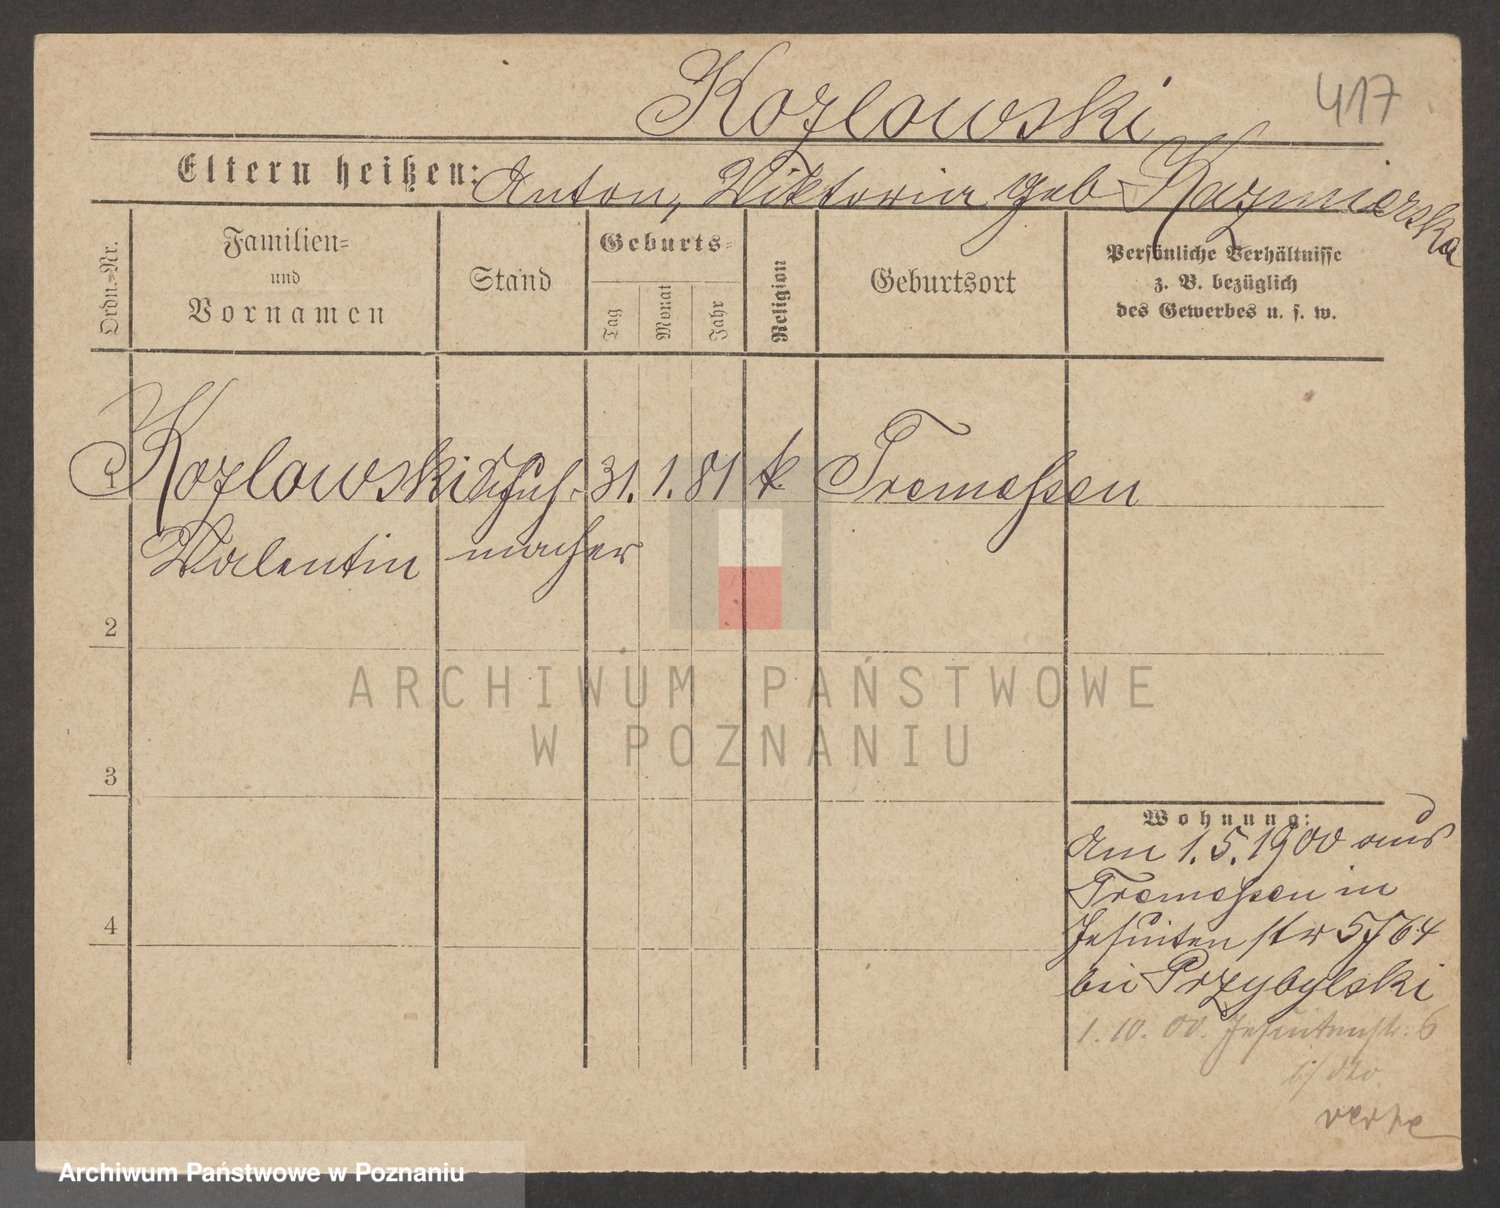 Kozlowski
417
Eltern heißen: Anton, Viktoria geb Kazmierska
Ordn.=Nr.
Familien=
und
Vornamen
Stand
Geburts=
Tag
Monat
Jahr
Religion
Geburtsort
Persönliche Verhältnisse
z. B. bezüglich
des Gewerbes u. s. w.
1 Kozlowski Schuh- 31. 1. 81 k. Tremessen
Valentin macher
2
3
4
Wohnung:
Am 1.5.1900 aus
Tremessen in
Jesuitenstr
bei Przybylski
1. 10. 00. Jesuitenstr. 6
ARCHIWUM PAŃSTWOWE
W POZNANIU
Archiwum Państwowe w Poznaniu